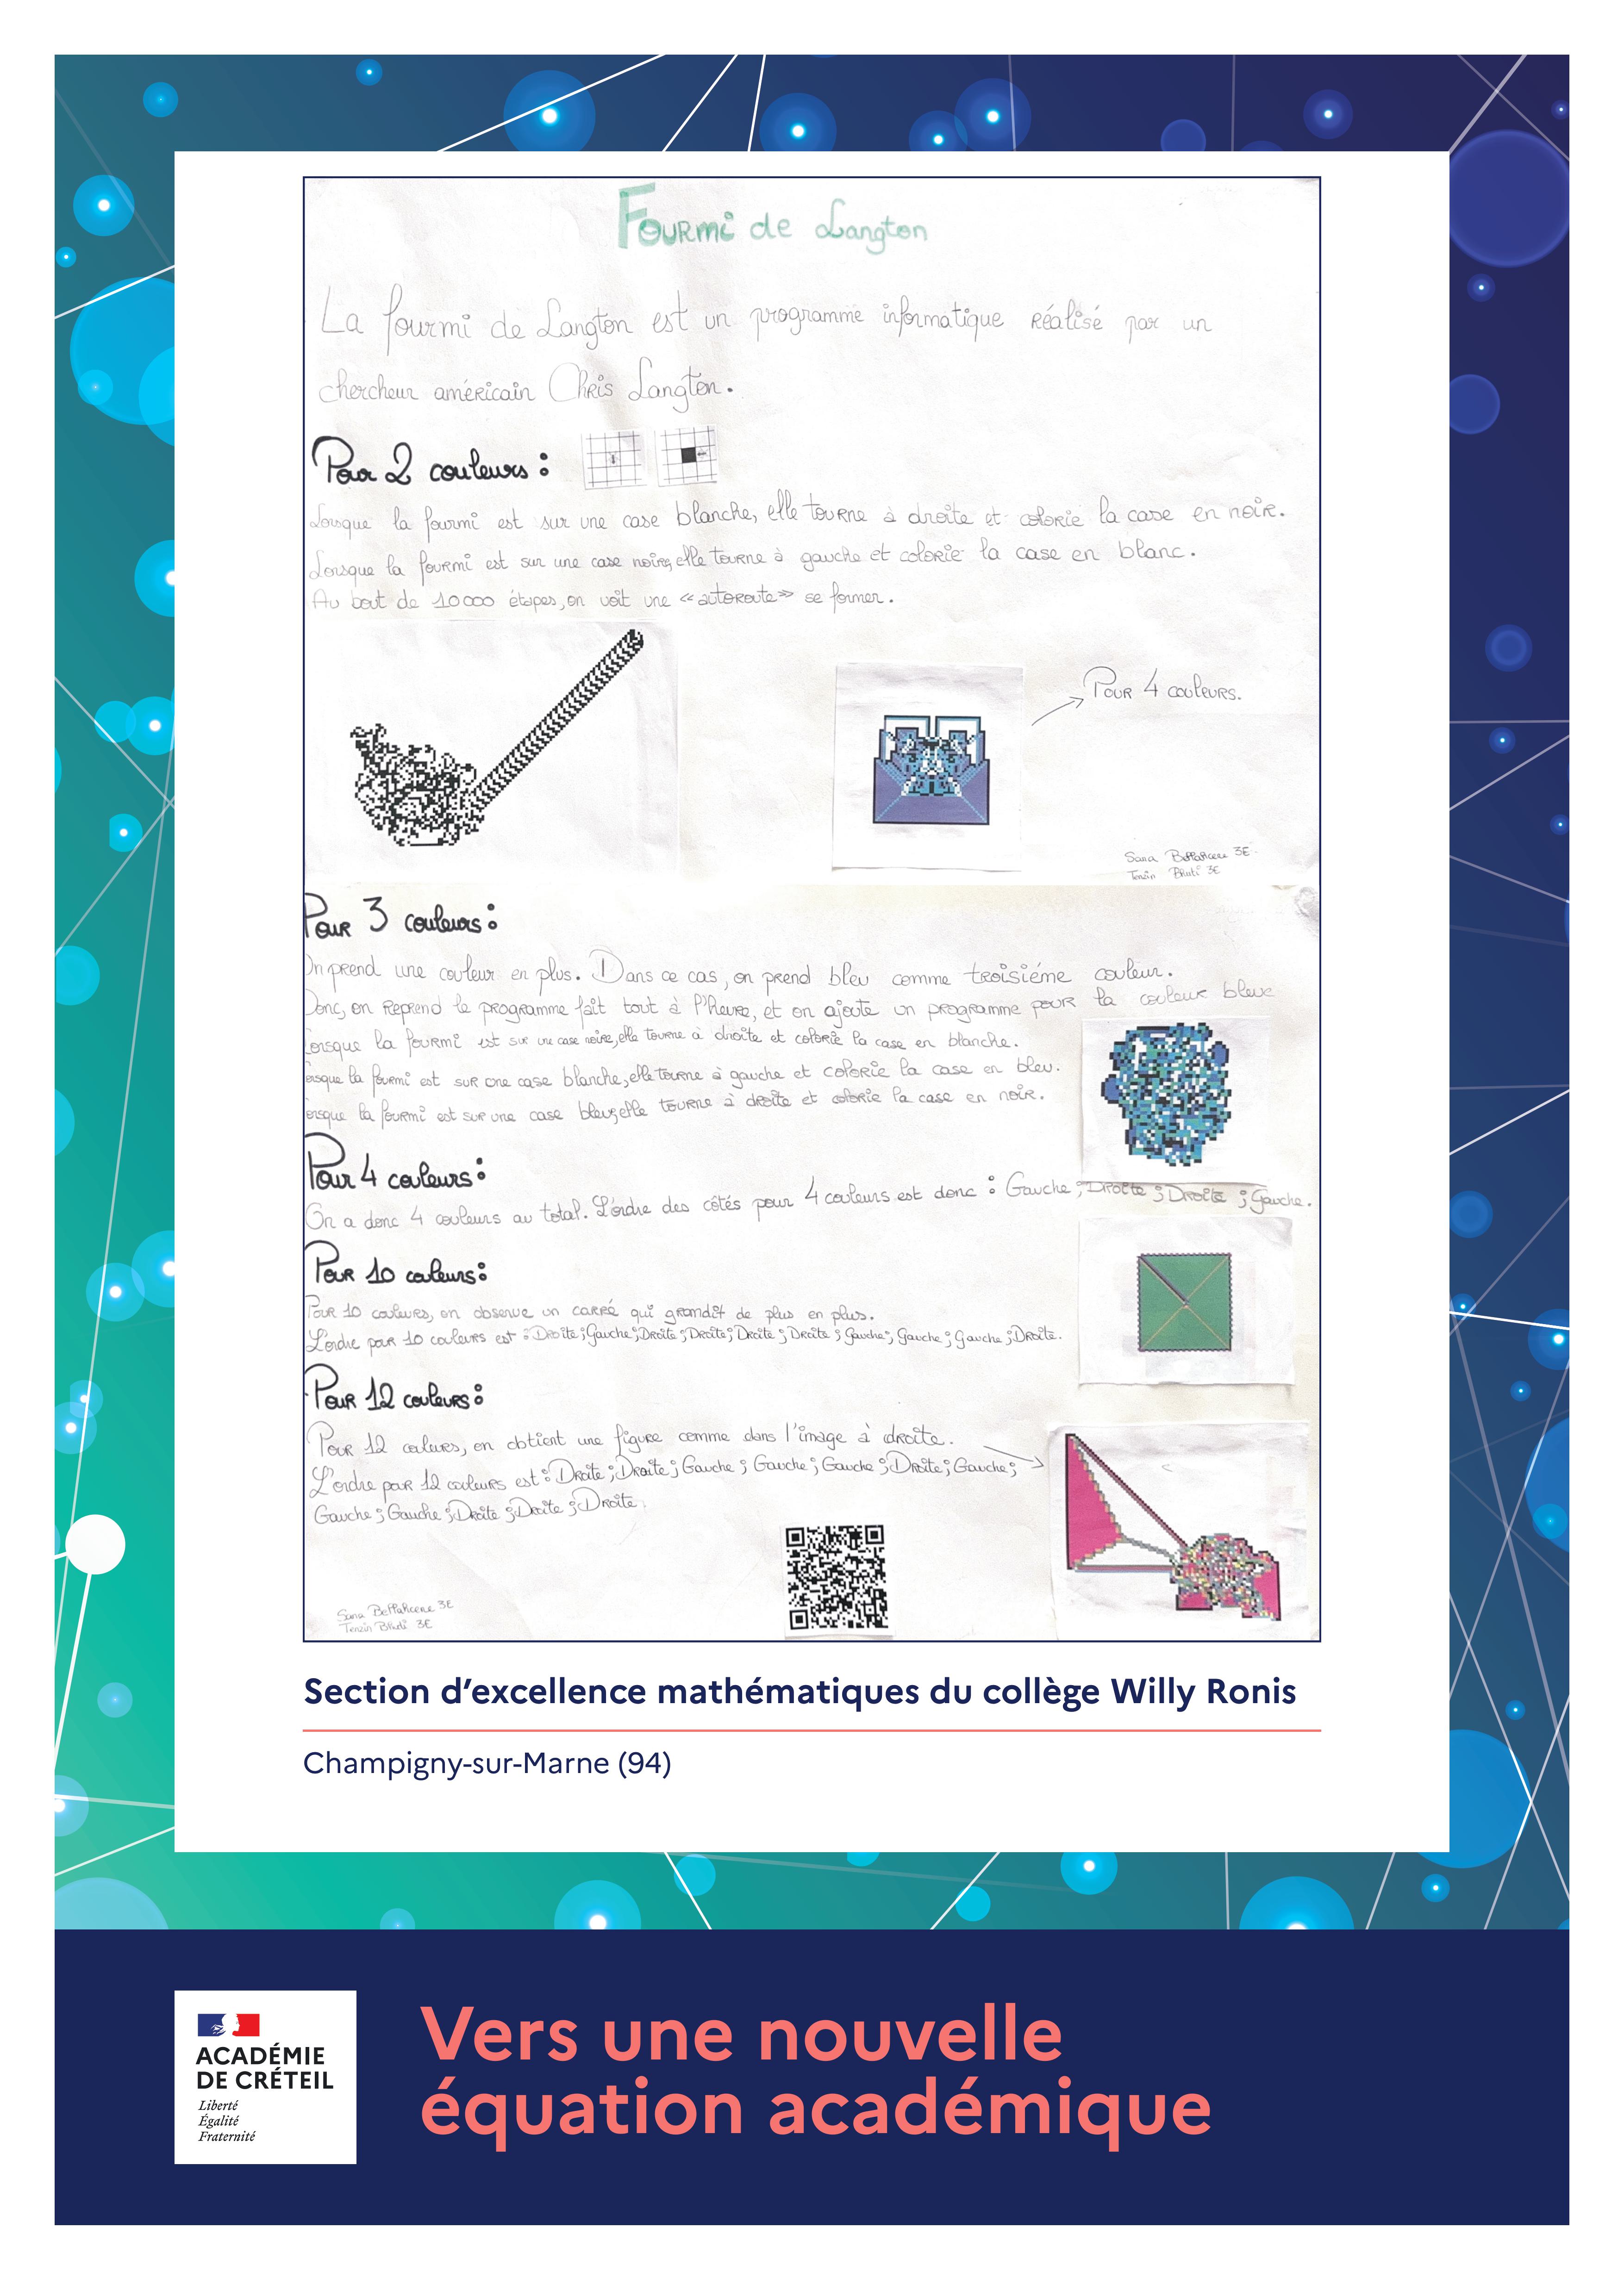 Fourmi de Langton
La fourmi de Langton est un programme informatique réalisé par un
chercheur américain Chris Langton.
Pour 2 couleurs :
Lorsque la fourmi est sur une case blanche, elle tourne à droite et colorie la case en noir.
Lorsque la fourmi est sur une case noire, elle tourne à gauche et colorie la case en blanc.
Au bout de 10000 étapes, on voit une «autoroute» se former.
Pour 4 couleurs.
Sana Bellahcene 3E
Tenzin Bhuti 3E
Pour 3 couleurs :
On prend une couleur en plus. Dans ce cas, on prend bleu comme troisiéme couleur.
Donc, on reprend le programme fait tout à l'heure, et on ajoute un programme pour la couleur bleue
Lorsque la fourmi est sur une case noire, elle tourne à droite et colorie la case en blanche.
Lorsque la fourmi est sur une case blanche, elle tourne à gauche et colorie la case en bleu.
Lorsque la fourmi est sur une case bleu, elle tourne à droite et colorie la case en noir.
Pour 4 couleurs :
On a donc 4 couleurs au total. L'ordre des côtés pour 4 couleurs est donc : Gauche ; Droite ; Droite ; Gauche.
Pour 10 couleurs :
Pour 10 couleurs, on observe un carré qui grandit de plus en plus.
L'ordre pour 10 couleurs est : Droite ; Gauche ; Droite ; Droite ; Droite ; Droite ; Gauche ; Gauche ; Gauche ; Droite.
Pour 12 couleurs :
Pour 12 couleurs, on obtient une figure comme dans l'image à droite.
L'ordre pour 12 couleurs est : Droite ; Droite ; Gauche ; Gauche ; Gauche ; Droite ; Gauche ;
Gauche ; Gauche ; Droite ; Droite ; Droite.
Sana Bellahcene 3E
Tenzin Bhuti 3E
Section d'excellence mathématiques du collège Willy Ronis
Champigny-sur-Marne (94)
ACADÉMIE
DE CRÉTEIL
Liberté
Égalité
Fraternité
Vers une nouvelle
équation académique